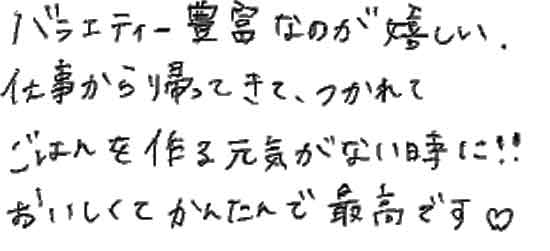 バラエティー豊富なのが嬉しい.
仕事から帰ってきて、つかれて
ごはんを作る元気がない時に!!
おいしくてかんたんで最高です♡